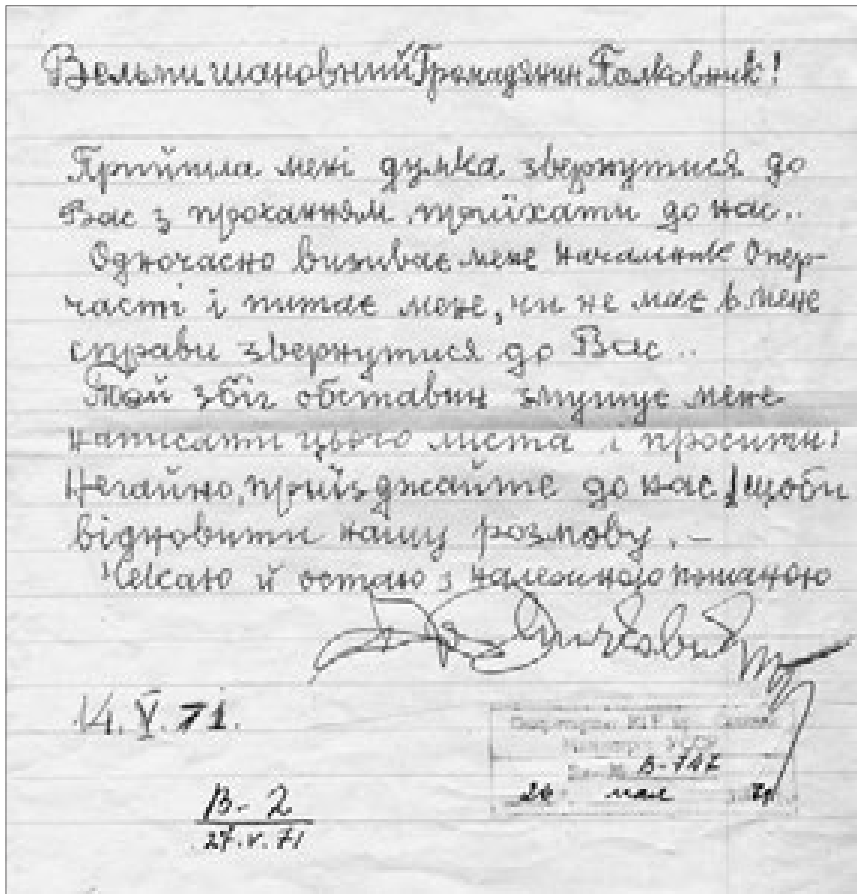 Вельми шановний Громадянин Полковник!
Прийшла мені думка звернутися до
Вас з проханням приїхати до нас..
Одночасно визиває мене начальник Опер-
часті і питає мене, чи не має в мене
справи звернутися до Вас..
Той збіг обставин змушує мене
написати цього листа і просити:
Негайно, приїзджайте до нас, щоби
відновити нашу розмову. –
Чекаю й остаю з належною пошаною
14. V. 71.
Секретариат КГБ
УССР
В-747
26 мая 71
В-2
27.V.71